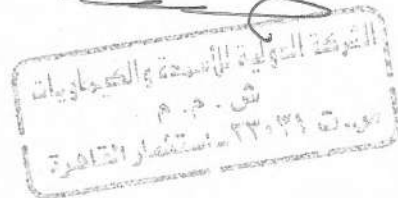 الشركة الدولية للأسمدة والكيماويات
ش . م . م
س.ت ٢٣٠٣٩ - استثمار القاهرة